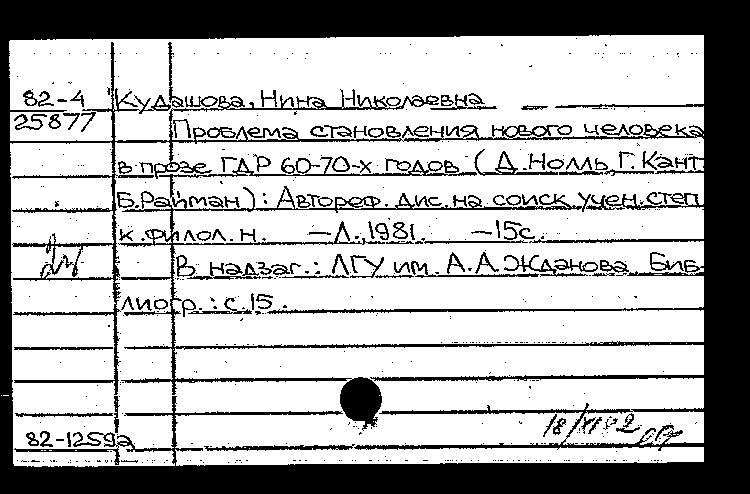 82-4 Кудашова, Нина Николаевна
25877 Проблема становления нового человека
в прозе ГДР 60-70-х годов ( Д. Нолль, Г. Кант
Б. Райман ) : Автореф. дис. на соиск. учен. степ.
к. филол. н. — Л., 1981. — 15с.
В надзаг. : ЛГУ им. А. А. Жданова. Биб-
лиогр. : с. 15 .
82-12592
18/XI 82